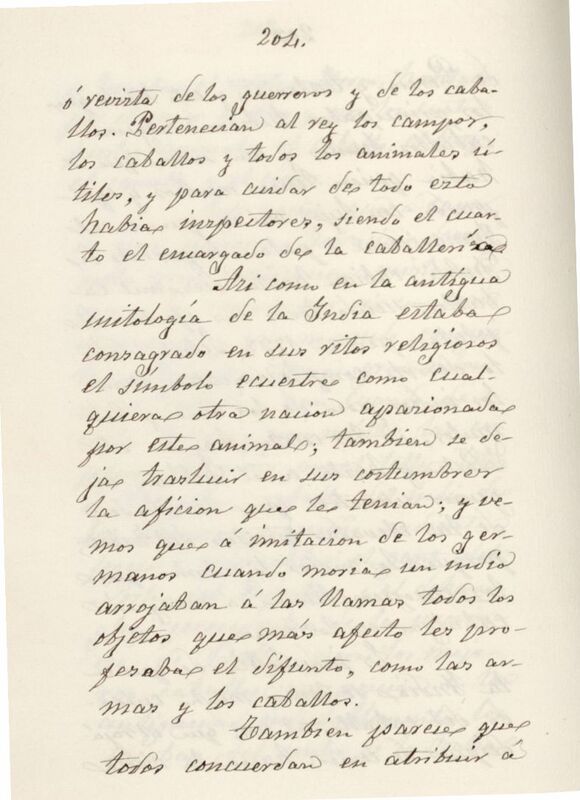 204.
ó revista de los guerreros y de los caba-
llos. Pertenecian al rey los campos,
los caballos y todos los animales ú-
tiles, y para cuidar de todo esto
habia inspectores, siendo el cuar-
to el encargado de la caballeriza
Asi como en la antígua
mitología de la India estaba
consagrado en sus ritos religiosos
el símbolo ecuestre como cual-
quiera otra nacion apasionada
por este animal; tambien se de-
ja traslucir en sus costumbres
la aficion que le tenian; y ve-
mos que á imitacion de los ger-
manos cuando moria un indio
arrojaban á las llamas todos los
objetos que más afecto les pro-
fesaba el difunto, como las ar-
mas y los caballos.
Tambien parece que
todos concuerdan en atribuir á